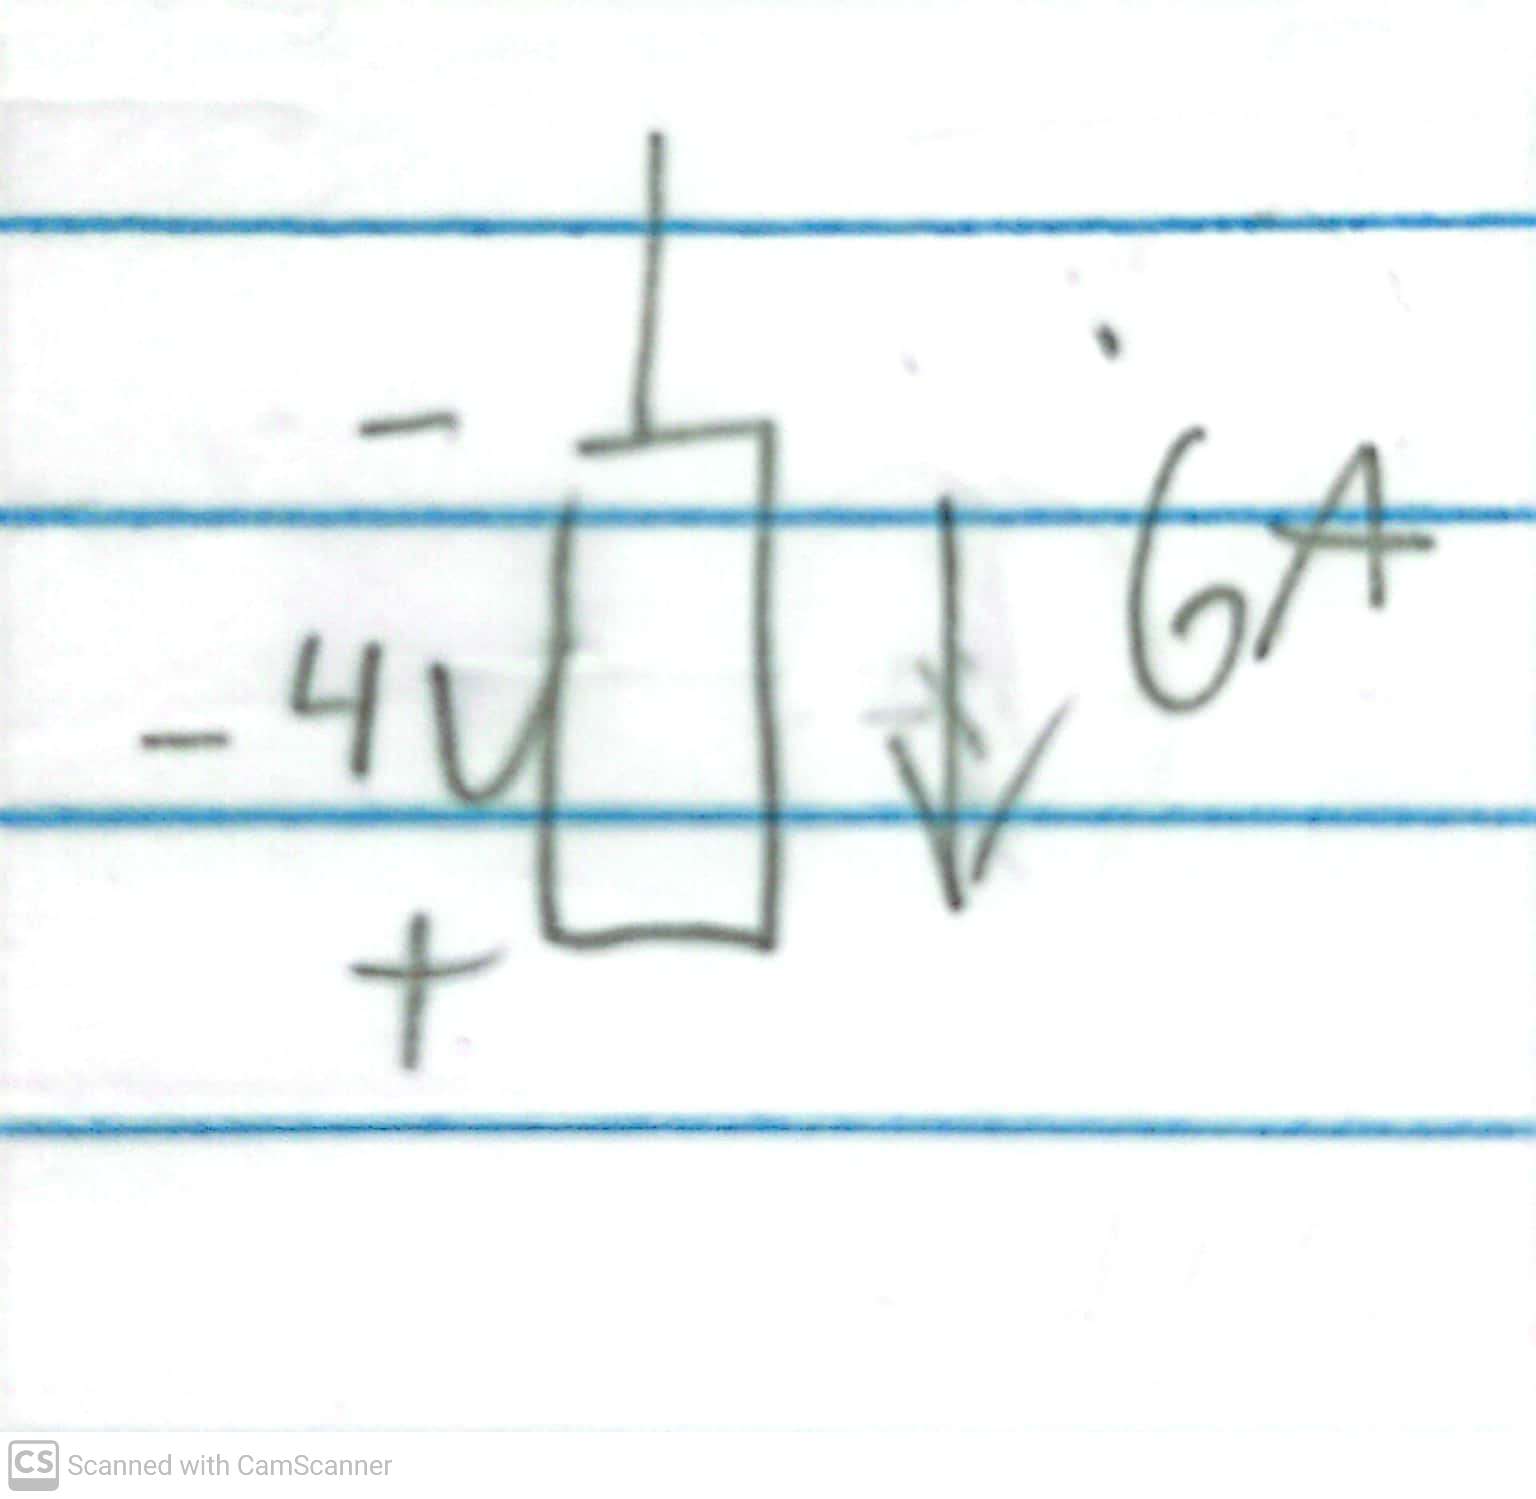 -
6A
-4V
+
CS Scanned with CamScanner